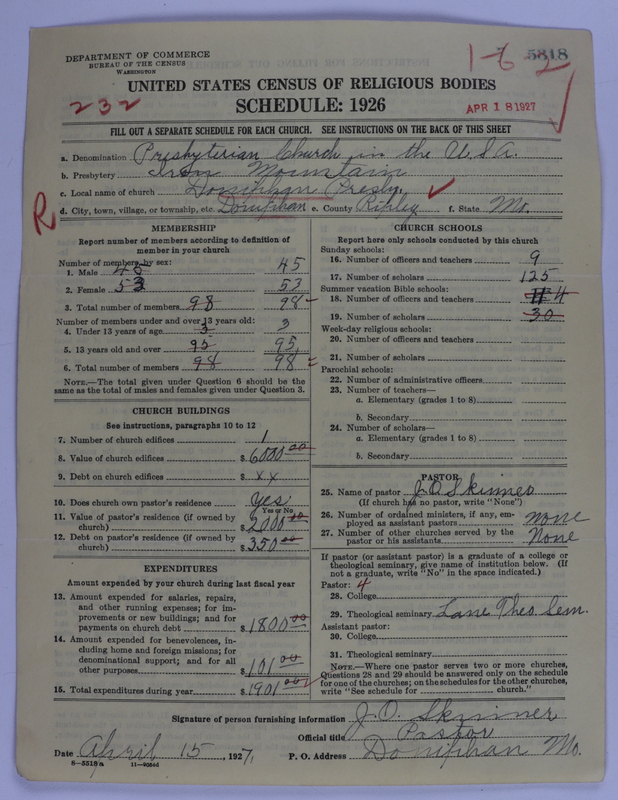 DEPARTMENT OF COMMERCE
BUREAU OF THE CENSUS
WASHINGTON
1-6 2 5818
UNITED STATES CENSUS OF RELIGIOUS BODIES
232 SCHEDULE: 1926 APR 18 1927
FILL OUT A SEPARATE SCHEDULE FOR EACH CHURCH. SEE INSTRUCTIONS ON THE BACK OF THIS SHEET
a. Denomination Presbyterian Church in the U.S.A.
b. Presbytery Iron Mountain
c. Local name of church Doniphan Presby.
R d. City, town, village, or township, etc. Doniphan e. County Ripley f. State Mo.
MEMBERSHIP
Report number of members according to definition of member in your church
Number of members by sex:
1. Male 45 45
2. Female 53 53
3. Total number of members 98 98
Number of members under and over 13 years old:
4. Under 13 years of age 3 3
5. 13 years old and over 95 95
6. Total number of members 98 98
NOTE.—The total given under Question 6 should be the
same as the total of males and females given under Question 3.
CHURCH BUILDINGS
See instructions, paragraphs 10 to 12
7. Number of church edifices 1
8. Value of church edifices $ 6000 00
9. Debt on church edifices $ x x
10. Does church own pastor's residence Yes
Yes or No
11. Value of pastor's residence (if owned by
church) $ 2000 00
12. Debt on pastor's residence (if owned by
church) $ 350 00
EXPENDITURES
Amount expended by your church during last fiscal year
13. Amount expended for salaries, repairs,
and other running expenses; for im-
provements or new buildings; and for
payments on church debt $ 1800 00
14. Amount expended for benevolences, in-
cluding home and foreign missions; for
denominational support; and for all
other purposes $ 101 00
15. Total expenditures during year $ 1901 00
CHURCH SCHOOLS
Report here only schools conducted by this church
Sunday schools:
16. Number of officers and teachers 9
17. Number of scholars 125
Summer vacation Bible schools:
18. Number of officers and teachers 4
19. Number of scholars 30
Week-day religious schools:
20. Number of officers and teachers
21. Number of scholars
Parochial schools:
22. Number of administrative officers
23. Number of teachers—
a. Elementary (grades 1 to 8)
b. Secondary
24. Number of scholars—
a. Elementary (grades 1 to 8)
b. Secondary
PASTOR
25. Name of pastor J.O. Skinner
(If church has no pastor, write "None")
26. Number of ordained ministers, if any, em-
ployed as assistant pastors none
27. Number of other churches served by the
pastor or his assistants None
If pastor (or assistant pastor) is a graduate of a college or
theological seminary, give name of institution below. (If
not a graduate, write "No" in the space indicated.)
Pastor: 4
28. College
29. Theological seminary Lane Theo. Sem.
Assistant pastor:
30. College
31. Theological seminary
NOTE.—Where one pastor serves two or more churches,
Questions 28 and 29 should be answered only on the schedule
for one of the churches; on the schedules for the other churches,
write "See schedule for church."
Signature of person furnishing information J.O. Skinner
Official title Pastor
Date April 15, 1927. P. O. Address Doniphan Mo.
8-5518a